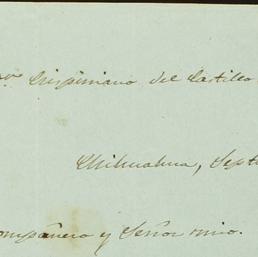 Crispiniano del Castillo
Chihuahua, Sept
ompañero y Señor mio.